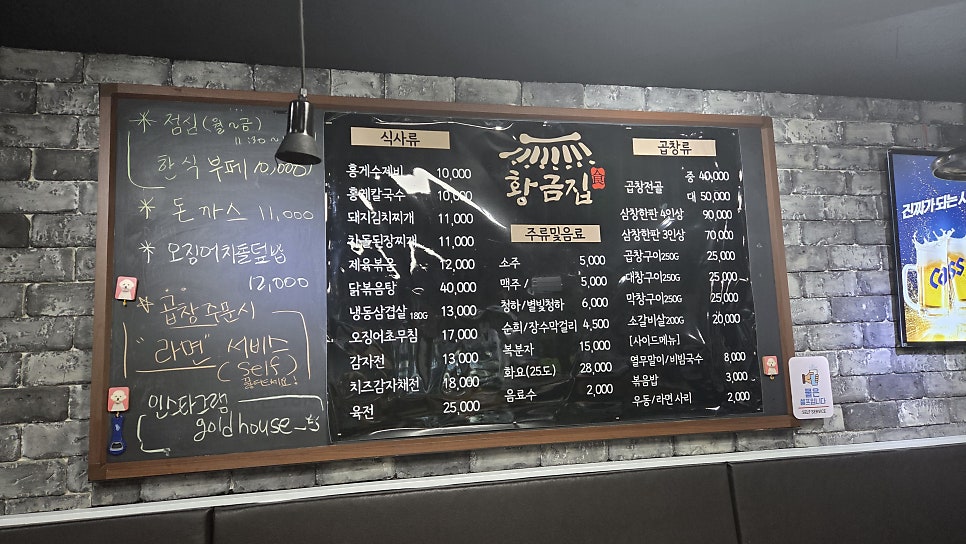 * 점심(월~금)
11:30~
한식 부페 10,000
* 돈까스 11,000
* 오징어차돌덮밥
12,000
* 곱창주문시
"라면" 서비스
(self)
인스타그램
goldhouse_
식사류
홍게수제비 10,000
홍게칼국수 10,000
돼지김치찌개 11,000
차돌된장찌개 11,000
제육볶음 12,000
닭볶음탕 40,000
냉동삼겹살 180G 13,000
오징어초무침 17,000
감자전 13,000
치즈감자채전 18,000
육전 25,000
황금집 食
주류및음료
소주 5,000
맥주 / 5,000
청하/별빛청하 6,000
순희/장수막걸리 4,500
복분자 15,000
화요(25도) 28,000
음료수 2,000
곱창류
곱창전골 중 40,000
대 50,000
삼창한판 4인상 90,000
삼창한판 3인상 70,000
곱창구이250G 25,000
대창구이250G 25,000
막창구이250G 25,000
소갈비살200G 20,000
[사이드메뉴]
열무말이/비빔국수 8,000
볶음밥 3,000
우동/라면 사리 2,000
물은
셀프입니다
SELF SERVICE
진짜가 되는 시
CASS